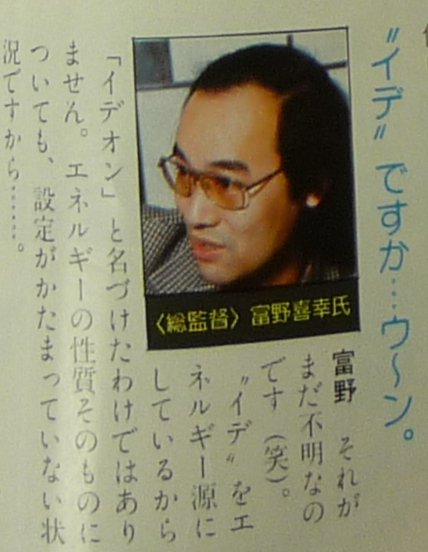 〝イデ〟ですか…ウ～ン。
〈総監督〉富野喜幸氏
富野 それが
まだ不明なの
です（笑）。
〝イデ〟をエ
ネルギー源に
しているから
「イデオン」と名づけたわけではあり
ません。エネルギーの性質そのものに
ついても、設定がかたまっていない状
況ですから……。